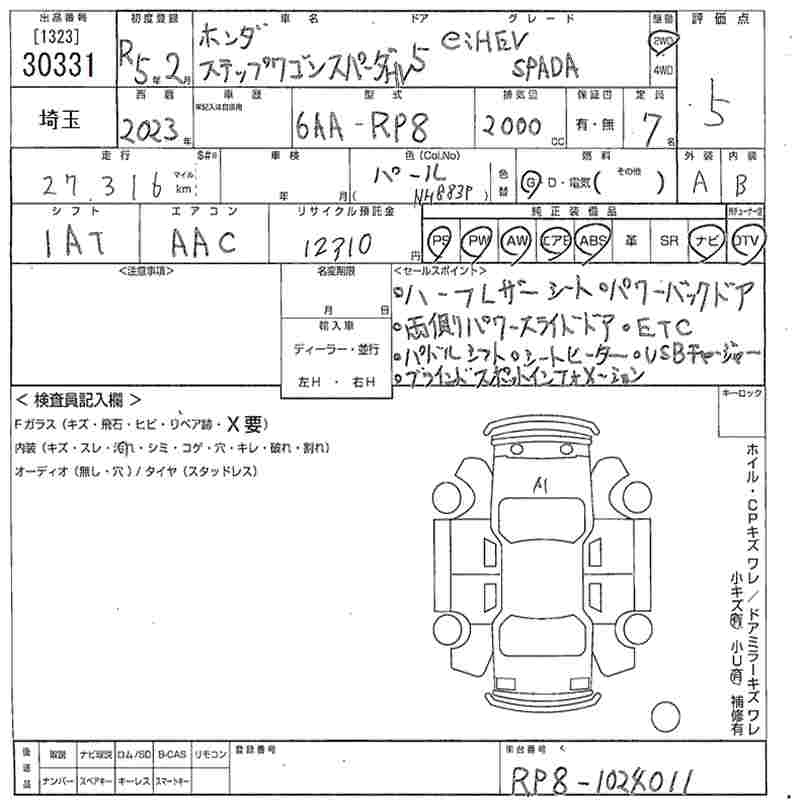 出品番号 初度登録 車名 ドア グレード 駆動 評価点
[1323]
30331 R5年2月 ホンダ ステップワゴンスパーダ 5 e:HEV SPADA 2WD 4WD 5
埼玉 西暦 車歴 型式 排気量 保証書 定員
2023年 未記入は自家用 6AA-RP8 2000cc 有・無 7名
走行 S#※ 車検 色(Col.No) 燃料 外装 内装
27,316 マイル km 年 月 パール (NH883P) 色替 G・D・電気( その他 ) A B
シフト エアコン リサイクル預託金 純正装備品
IAT AAC 12310円 PS PW AW エアB ABS 革 SR ナビ DTV
<注意事項> 名変期限 <セールスポイント>
月 日 ・ハーフレザーシート・パワーバックドア
輸入車 ・両側パワースライドドア・ETC
ディーラー・並行 ・パドルシフト・シートヒーター・USBチャージャー
左H ・ 右H ・ブラインドスポットインフォメーション
< 検査員記入欄 > キーロック
Fガラス(キズ・飛石・ヒビ・リペア跡・X要)
内装(キズ・スレ・汚れ・シミ・コゲ・穴・キレ・破れ・割れ)
オーディオ(無し・穴)/タイヤ(スタッドレス)
A1
ホイル・CPキズ ワレ / ドアミラーキズ ワレ
小キズ有 小U有 補修有
後送品 取説 ナビ取説 ロム/SD B-CAS リモコン 登録番号 車台番号
ナンバー スペアキー キーレス スマートキー RP8-1024011